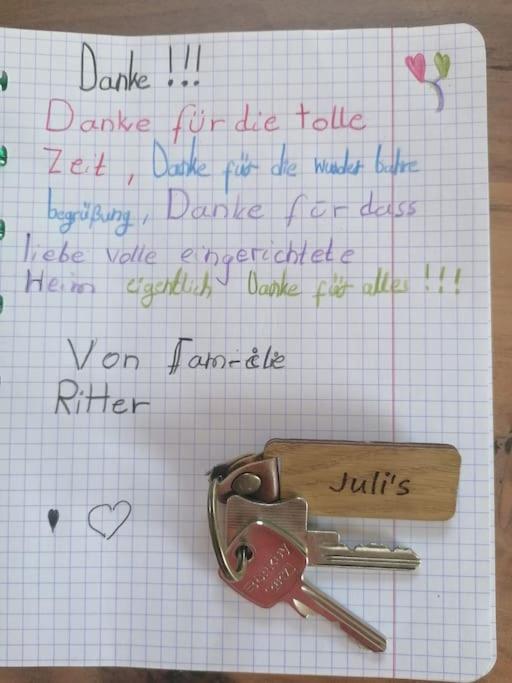 Danke !!!
Danke für die tolle
Zeit , Danke für die wunder bahre
begrüßung, Danke för dass
liebe volle eingerichtete
Heim eigentlich Danke für alles !!!
Von Familie
Ritter
Juli's